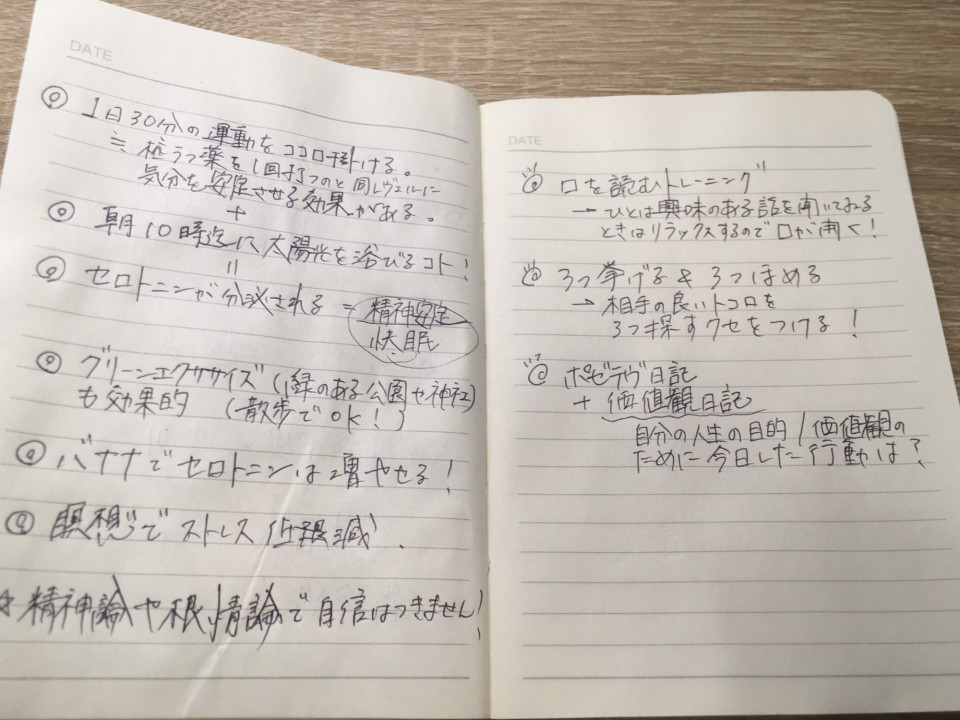 DATE
◎ 1日30分の運動をココロ掛ける。
≒ 抗うつ薬を1回打つのと同レヴェルに
気分を安定させる効果がある。
+
◎ 朝10時迄に太陽光を浴びるコト!
◎ セロトニンが分泌される = 精神安定
快眠
◎ グリーンエクササイズ(緑のある公園や神社)
も効果的 (散歩でOK!)
◎ バナナでセロトニンは増やせる!
◎ 瞑想でストレス低減
☆ 精神論や根情論で自信はつきません!
DATE
◎ 口を読むトレーニング
→ ひとは興味のある話を聞いてみる
ときはリラックスするので口が開く!
◎ 3つ挙げる & 3つほめる
→ 相手の良いトコロを
3つ探すクセをつける!
◎ ポゼテヴ日記
+ 価値観日記
自分の人生の目的/価値観の
ために今日した行動は?